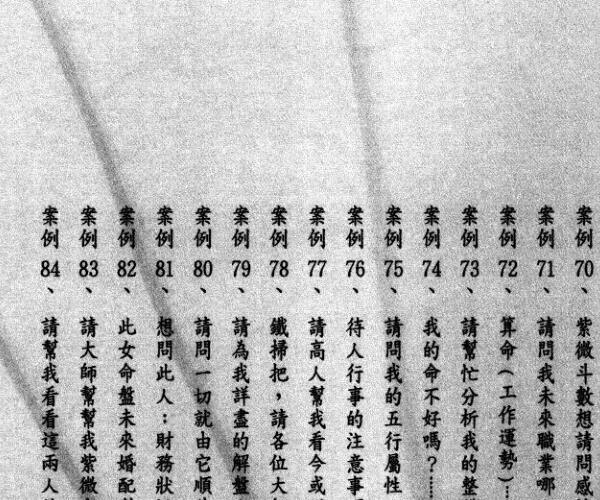 案例70、紫微斗數想請問感
案例71、請問我未來職業哪
案例72、算命(工作運勢)…
案例73、請幫忙分析我的整
案例74、我的命不好嗎?……
案例75、請問我的五行屬性
案例76、待人行事的注意事
案例77、請高人幫我看今或
案例78、鐵掃把,請各位大
案例79、請為我詳盡的解盤
案例80、請問一切就由它順
案例81、想問此人:財務狀
案例82、此女命盤未來婚配
案例83、請大師幫幫我紫微
案例84、請幫我看看這兩人